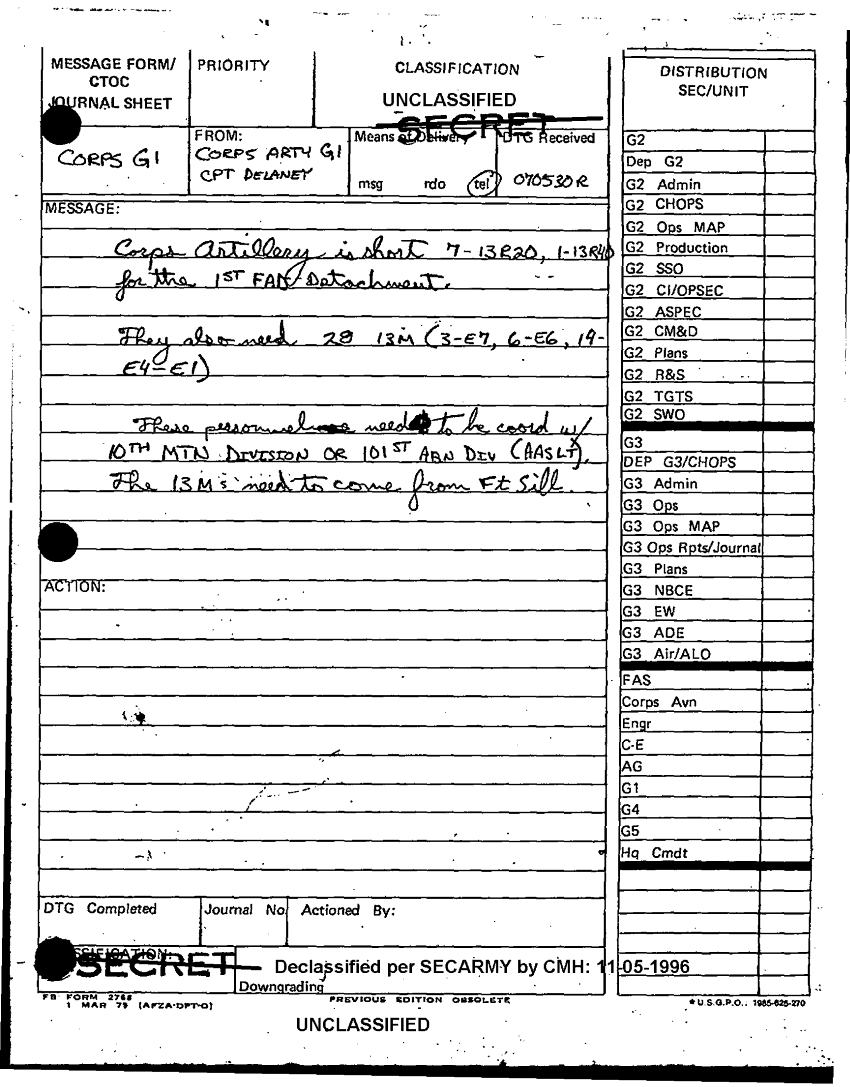 MESSAGE FORM/
CTOC
JOURNAL SHEET
PRIORITY
CLASSIFICATION
UNCLASSIFIED
SECRET
CORPS G1
FROM:
CORPS ARTY G1
CPT DELANEY
Means of Delivery
msg rdo tel
DTG Received
070530R
MESSAGE:
Corps Artillery is short 7-13R20, 1-13R40
for the 1ST FAD Detachment.
They also need 28 13M (3-E7, 6-E6, 19-
E4-E1)
These personnel need to be coord w/
10TH MTN DIVISION OR 101ST ABN DIV (AASLT).
The 13M's need to come from Ft Sill.
ACTION:
DTG Completed
Journal No
Actioned By:
CLASSIFICATION:
SECRET
Declassified per SECARMY by CMH: 11-05-1996
Downgrading
FB FORM 2768
1 MAR 79 (AFZA-DPT-O)
PREVIOUS EDITION OBSOLETE
UNCLASSIFIED
DISTRIBUTION
SEC/UNIT
G2
Dep G2
G2 Admin
G2 CHOPS
G2 Ops MAP
G2 Production
G2 SSO
G2 CI/OPSEC
G2 ASPEC
G2 CM&D
G2 Plans
G2 R&S
G2 TGTS
G2 SWO
G3
DEP G3/CHOPS
G3 Admin
G3 Ops
G3 Ops MAP
G3 Ops Rpts/Journal
G3 Plans
G3 NBCE
G3 EW
G3 ADE
G3 Air/ALO
FAS
Corps Avn
Engr
C-E
AG
G1
G4
G5
Hq Cmdt
* U.S.G.P.O.: 1985-625-270